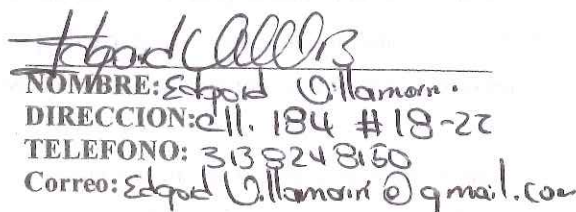 NOMBRE: Edgard Villamarin.
DIRECCION: cll. 184 # 18-22
TELEFONO: 3138248160
Correo: Edgard Villamarin @ gmail.com